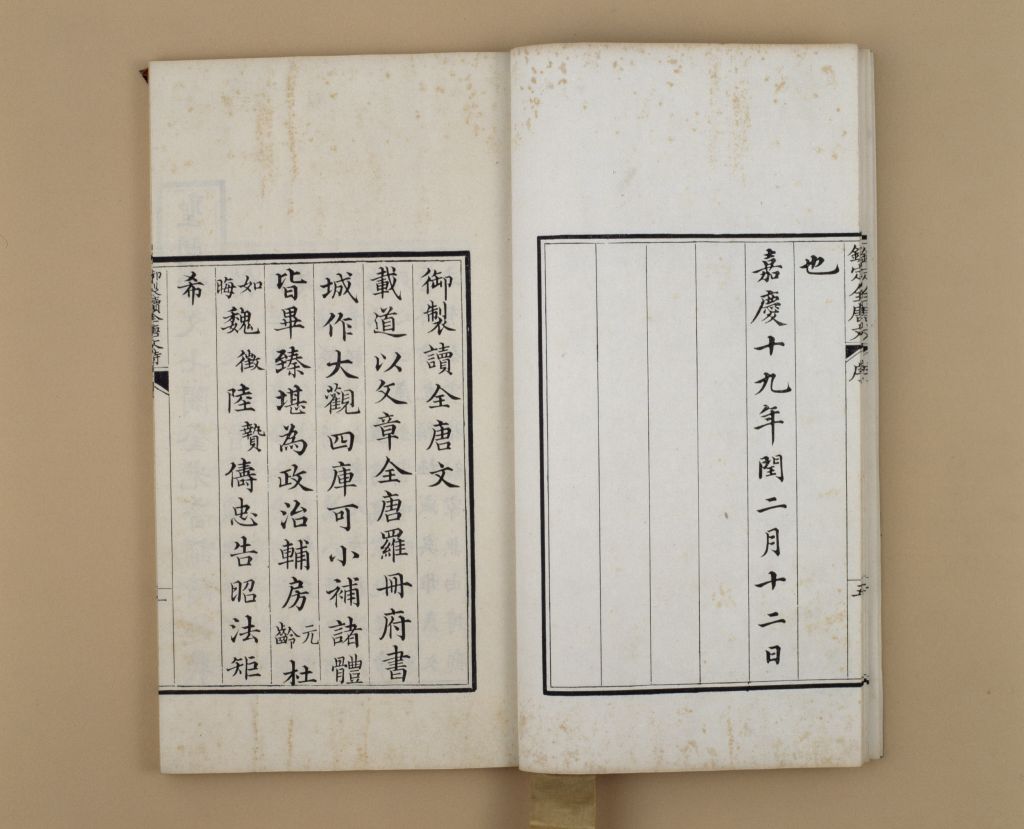 全唐文
序
五
也
嘉慶十九年閏二月十二日
御製讀全唐文
載道以文章全唐羅冊府書
城作大觀四庫可小補諸體
皆畢臻堪為政治輔房元齡杜
如晦魏徵陸贄儔忠告昭法矩
希
御製讀全唐文詩
一